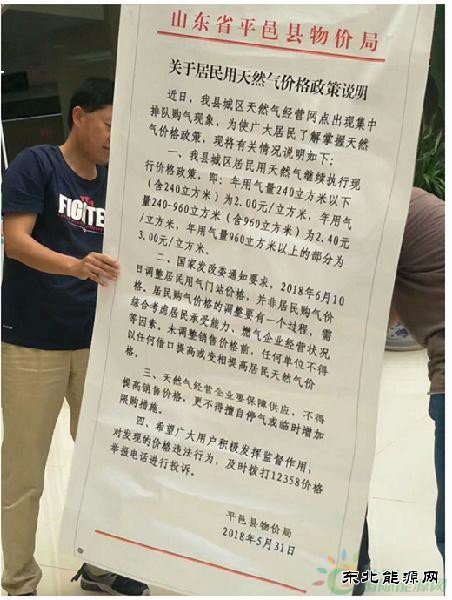 山东省平邑县物价局
关于居民用天然气价格政策说明
近日，我县城区天然气经营网点出现集中
排队购气现象，为使广大居民了解掌握天然
气价格政策，现将有关情况说明如下：
一、我县城区居民用天然气继续执行现
行价格政策，即：年用气量240立方米以下
（含240立方米）为2.00元/立方米，年用气
量240-960立方米（含960立方米）为2.40元
/立方米，年用气量960立方米以上的部分为
3.00元/立方米。
二、国家发改委通知要求，2018年6月10
日调整居民用气门站价格，并非居民购气价
格。居民购气价格的调整要有一个过程，需
综合考虑居民承受能力、燃气企业经营状况
等因素。未调整销售价格前，任何单位不得
以任何借口提高或变相提高居民天然气价
格。
三、天然气经营企业要保障供应，不得
提高销售价格，更不得擅自停气或临时增加
限购措施。
四、希望广大用户积极发挥监督作用，
对发现的价格违法行为，及时拨打12358价格
举报电话进行投诉。
平邑县物价局
2018年5月31日
FIGHTE
东北能源网